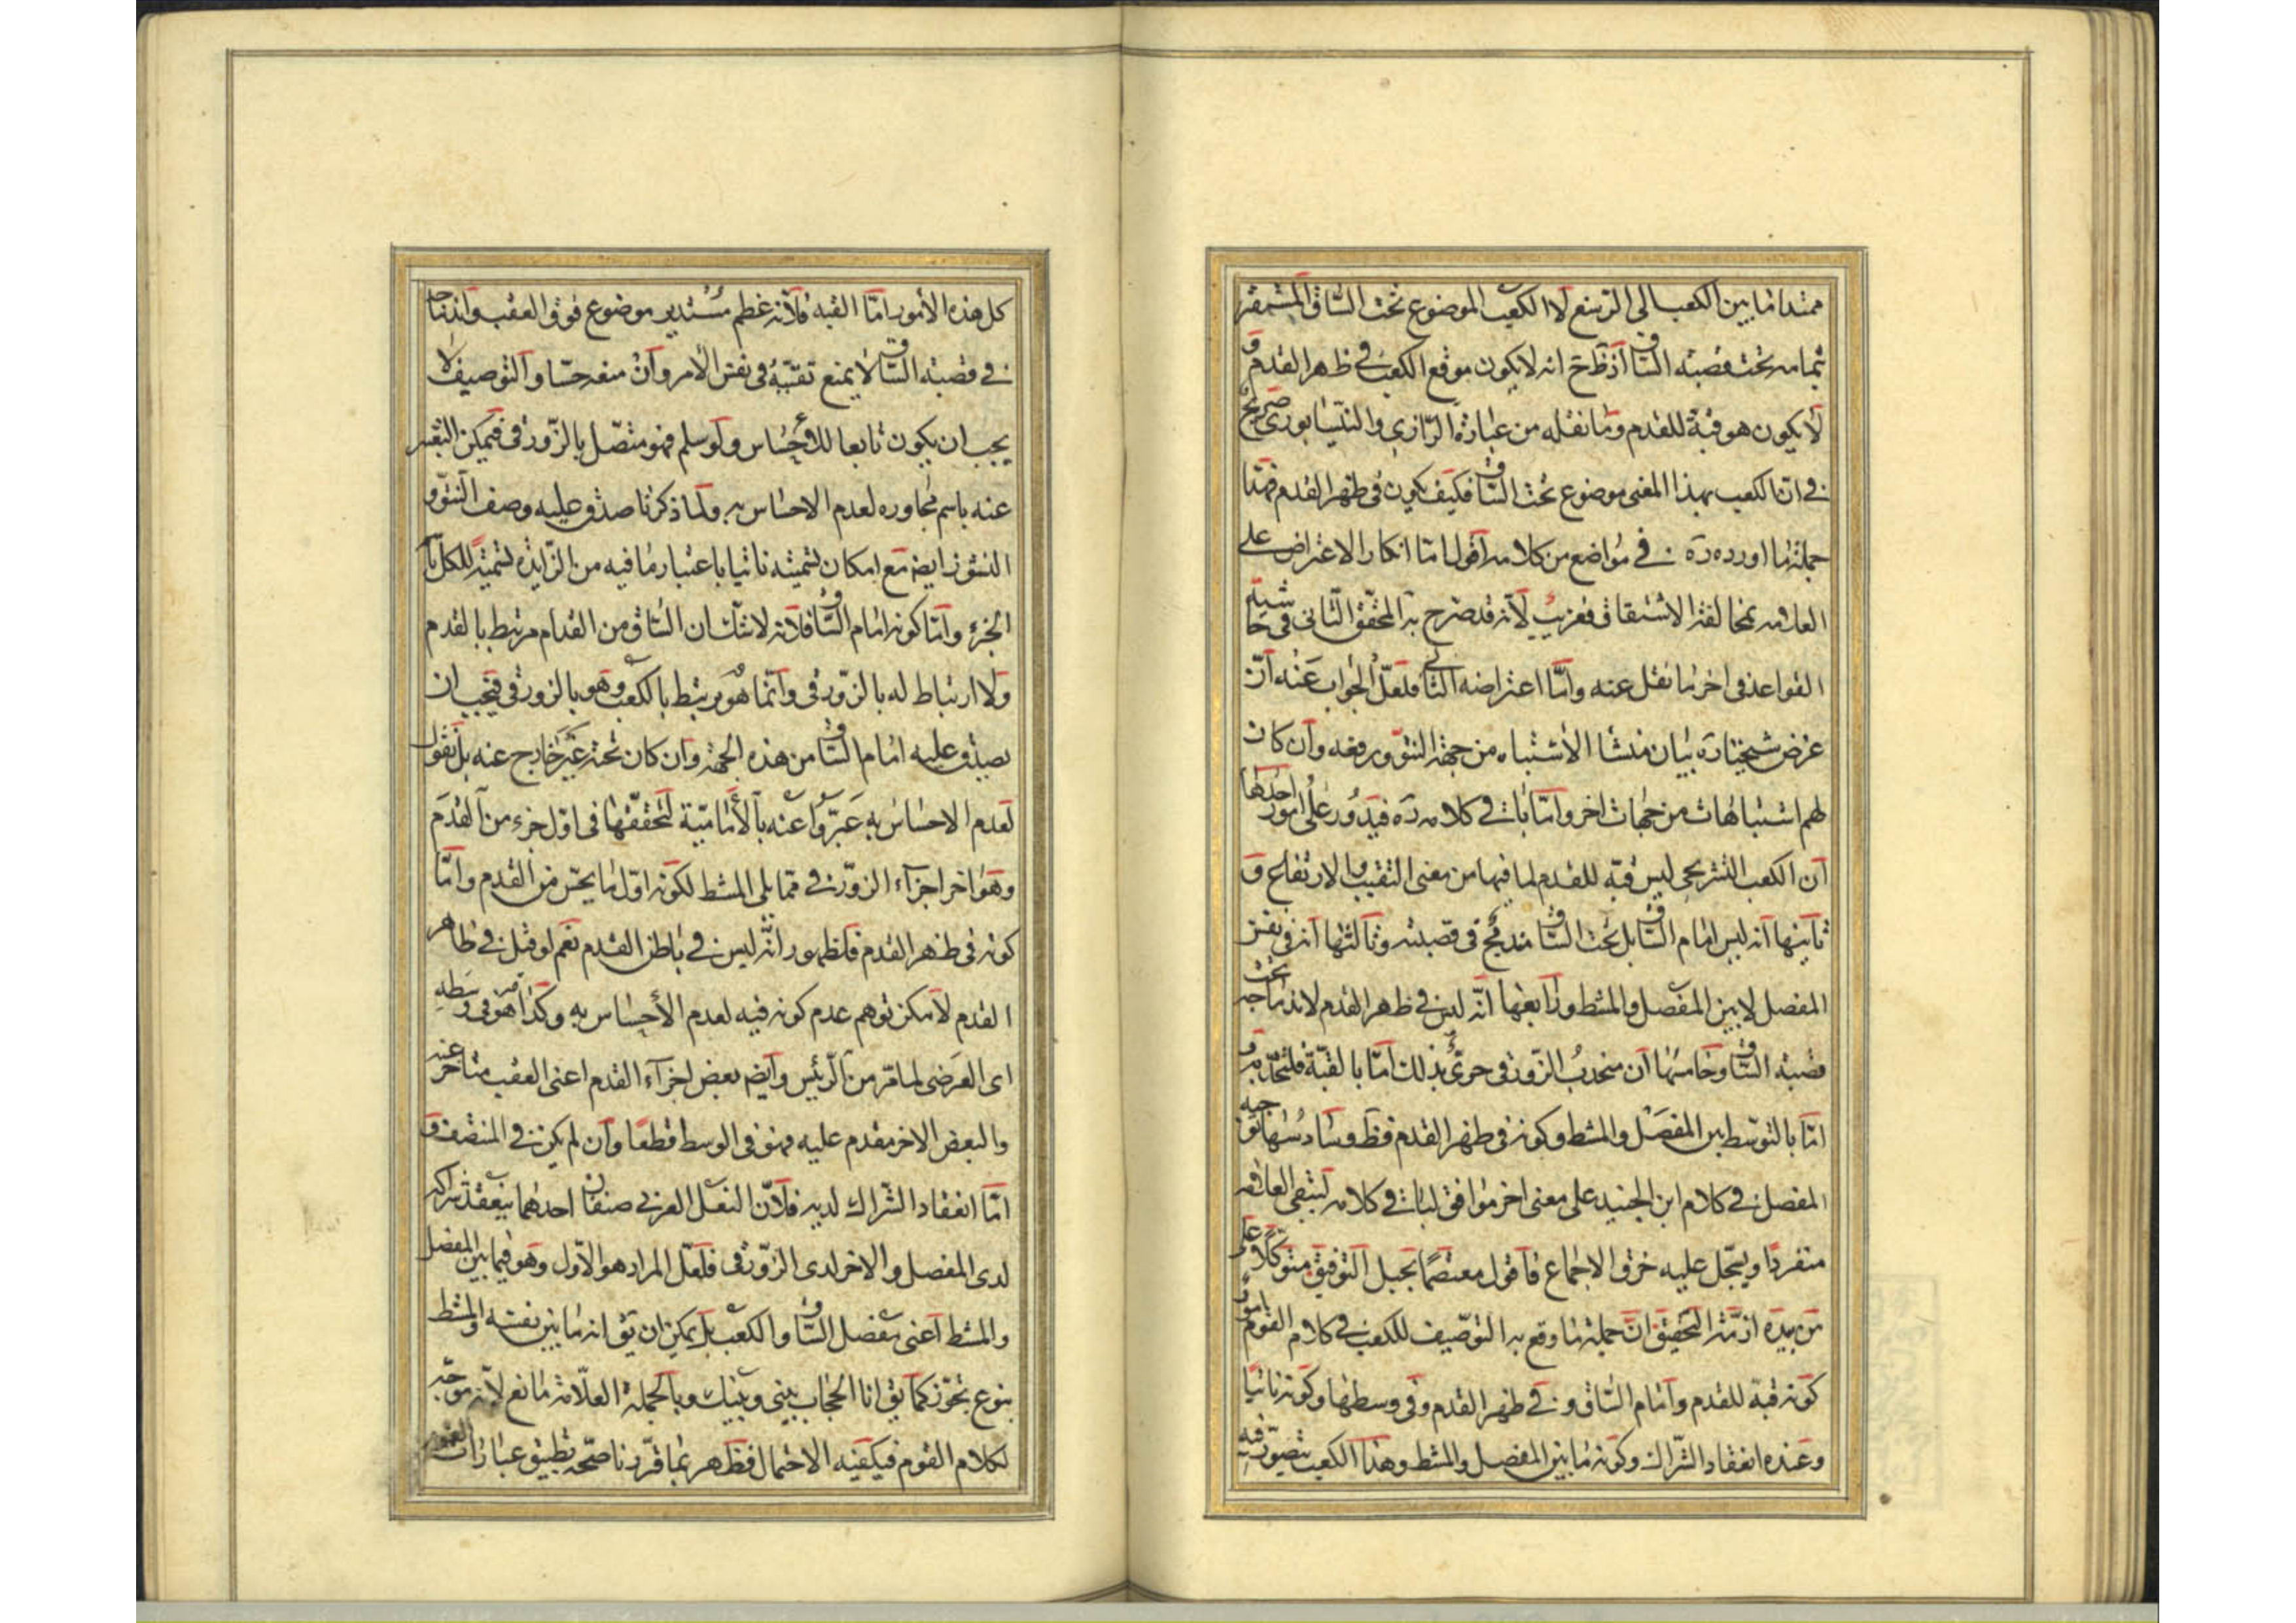 ممتدا ما بين الكعب الى الرسغ لا الكعب الموضوع تحت الساق المستقر
بتمامه تحت قصبته الساق اذ ظ ح انه لا يكون موقع الكعب في ظهر القدم و
لا يكون هو قبة للقدم وما نقله من عبارة الرازي والنيسابوري صريح
في ان الكعب بهذا المعنى موضوع تحت الساق فكيف يكون في ظهر القدم فهذا
جملة ما اورده ره في مواضع من كلامه اقول اما انكار الاعتراض على
العلامه بمخالفة الاشتقاق فغريب لانه قد صرح به المحقق الثاني في حاشية
القواعد في اخر ما نقل عنه واما اعتراضه الثاني فلعل الجواب عنه ان
غرض شيخنا ره بيان منشا الاشتباه من جهة النتو ورفعه وان كان
لهم اشتباهات من جهات اخر واما بات في كلامه ره فيدور على امور احدها
ان الكعب التشريحي ليس قبة للقدم لما فيها من معنى التقبب والارتفاع و
ثانيها انه ليس امام الساق بل تحت الساق مندمج في قصبته وثالثها انه في نفس
المفصل لا بين المفصل والمشط ورابعها انه ليس في ظهر القدم لاندماجه تحت
قصبة الساق وخامسها ان محدب الزورقي حري بذلك اما بالقبة فلتحدبه و
اما بالتوسط بين المفصل والمشط وكونه في ظهر القدم فظ وسادسها توجيه
المفصل في كلام ابن الجنيد على معنى اخر موافق لبات في كلامه ليبقى العلامه
متفردا ويسجل عليه خرق الاجماع فاقول معتصما بحبل التوفيق متوكلا على
من بيده ازمة التحقيق ان جملة ما وقع به التوصيف للكعب في كلام القوم امور
كونه قبة للقدم وامام الساق وفي ظهر القدم وفي وسطها وكونه ناتيا
وعنده انعقاد الشراك وكونه ما بين المفصل والمشط وهذا الكعب يتصور فيه
كل هذه الامور اما القبة فلانه عظم مستدير موضوع فوق العقب واندماجه
في قصبته الساق لا يمنع تقببه في نفس الامر وان منعه حسا والتوصيف لا
يجب ان يكون تابعا للاحساس ولو سلم فهو متصل بالزورقي فيمكن التعبير
عنه باسم مجاوره لعدم الاحساس به ولما ذكرنا صدق عليه وصف النتو و
النشوز ايضا مع امكان تسميته ناتيا باعتبار ما فيه من الزايدة تسمية للكل باسم
الجزء واما كونه امام الساق فلانه لا شك ان الساق من القدام مرتبط بالقدم
ولا ارتباط له بالزورقي وانما هو يرتبط بالكعب وهو بالزورقي فيجب ان
يصدق عليه امام الساق من هذه الجهة وان كان تحته غير خارج عنه بل نقول
لعدم الاحساس به عبروا عنه بالامامية لتحققها في اول جزء من القدم
وهو اخر اجزاء الزورقي مما يلي المشط لكونه اول ما يحس من القدم واما
كونه في ظهر القدم فلظهور انه ليس في باطن القدم نعم لو قيل في ظاهر
القدم لامكن توهم عدم كونه فيه لعدم الاحساس به وكذا هو في وسطه
اى العرضى لما مر من الرئيس وايضا بعض اجزاء القدم اعنى العقب متاخر عنه
والبعض الاخر مقدم عليه فهو في الوسط قطعا وان لم يكن في المنتصف و
اما انعقاد الشراك لديه فلان النعل العربي صنفان احدهما ينعقد شراكه
لدى المفصل والاخر لدى الزورقي فلعل المراد هو الاول وهو فيما بين المفصل
والمشط اعنى مفصل الساق والكعب بل يمكن ان يق انه ما بين نفسه والمشط
بنوع تجوز كما يق انا الحجاب بيني وبينك وبالجملة العلامة مانع لانه موجه
لكلام القوم فيكفيه الاحتمال فظهر بما قررنا صحه تطبيق عبارات القوم